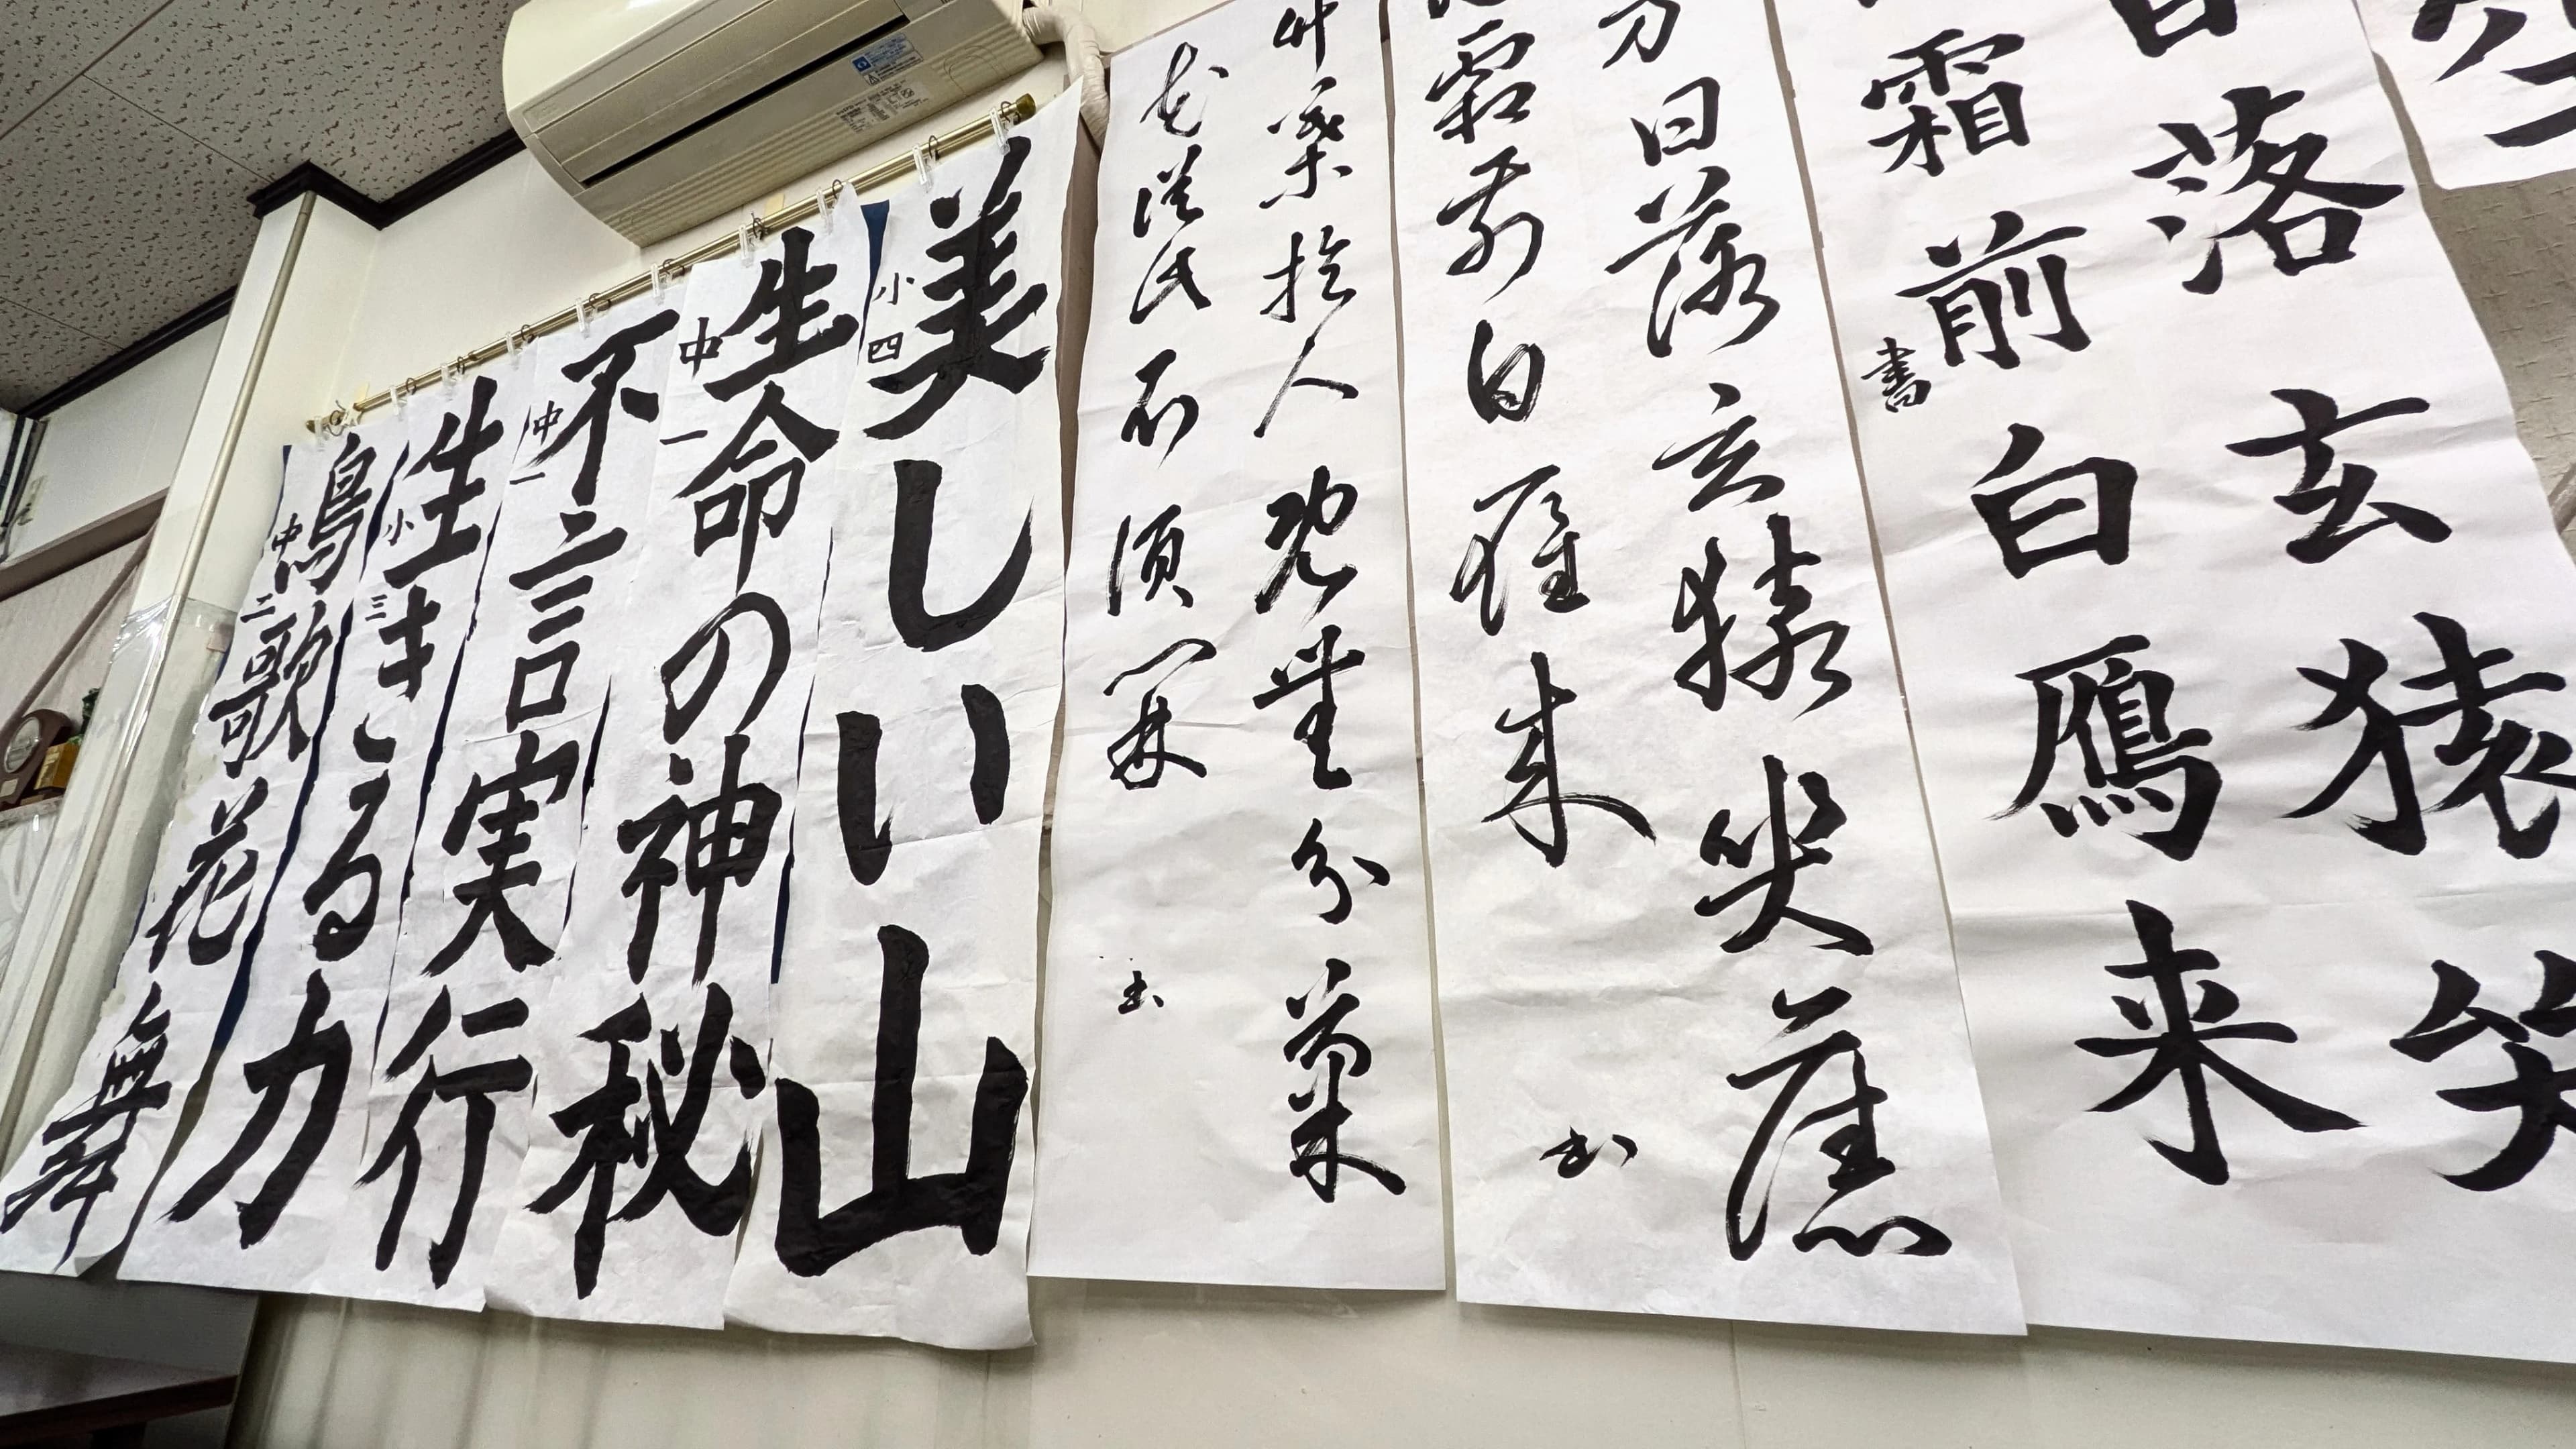 日落玄猿笑
霜前白鴈来
書
日落玄猿哭
霜前白雁来
書
竹葉於人既無分菊
花従此不須開
書
美しい山
小四
生命の神秘
中一
不言実行
中一
生きる力
小三
鳥歌花舞
中二